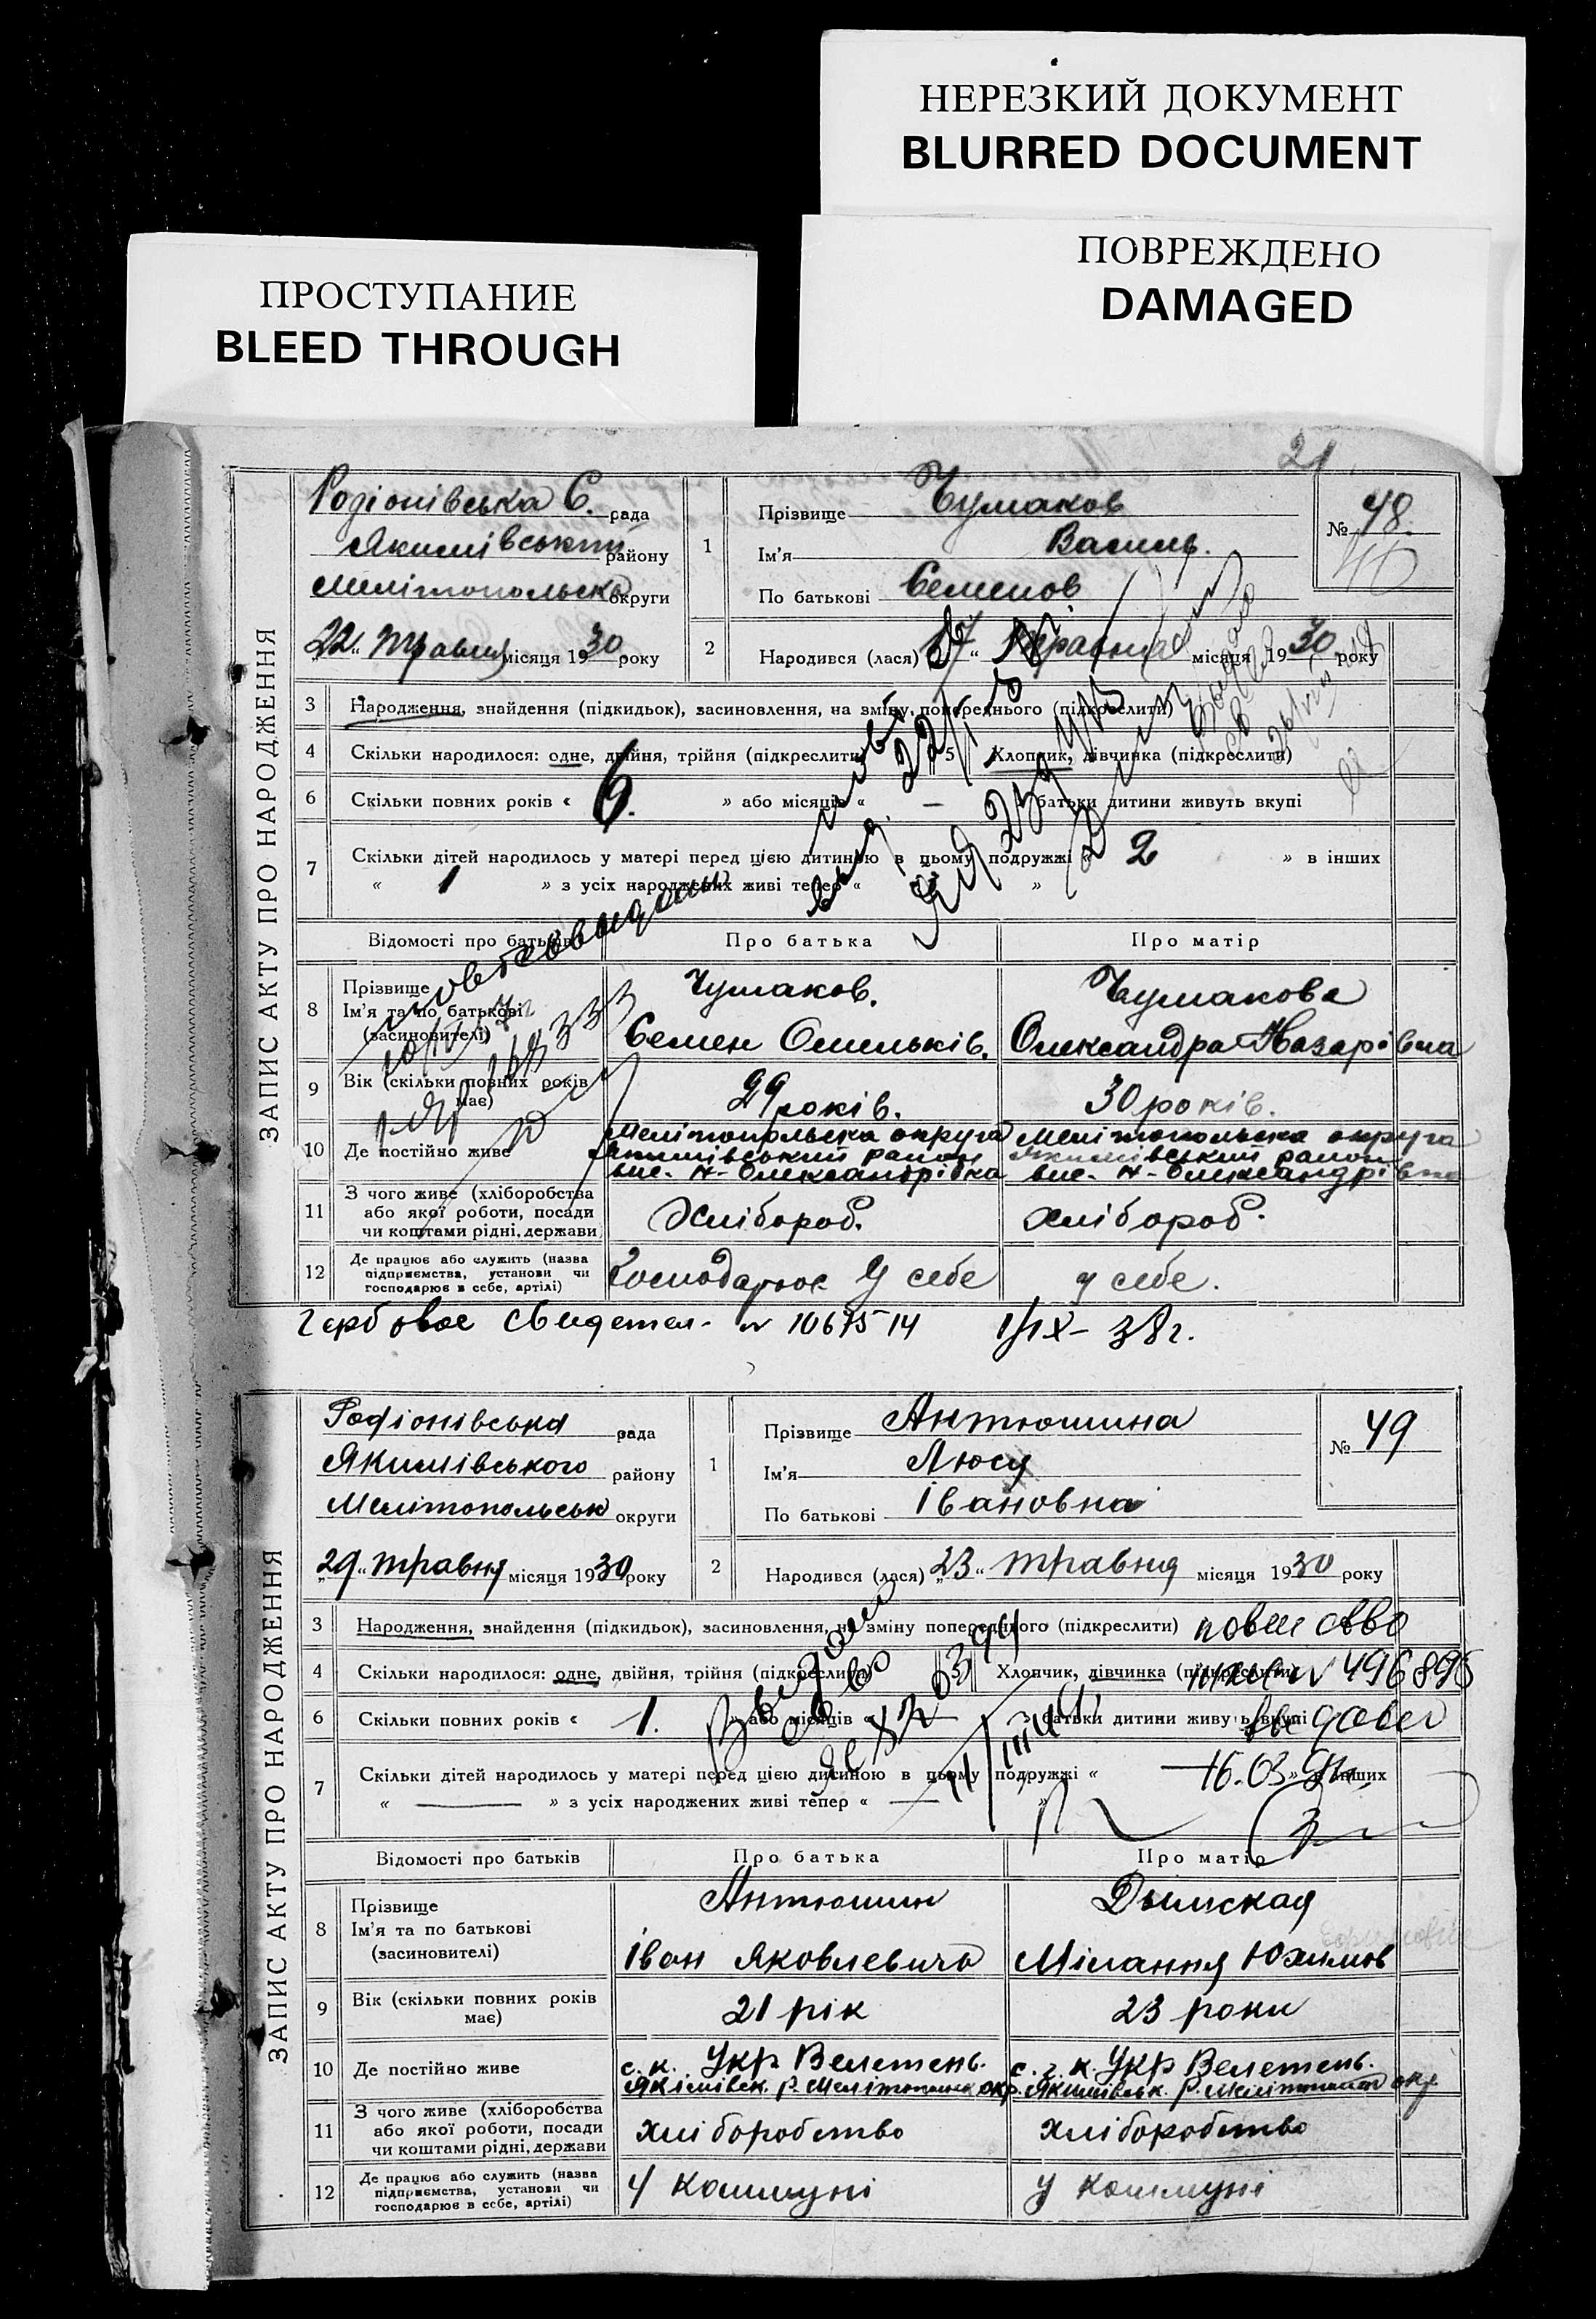 НЕРЕЗКИЙ ДОКУМЕНТ
BLURRED DOCUMENT
ПОВРЕЖДЕНО
DAMAGED
ПРОСТУПАНИЕ
BLEED THROUGH
21
ЗАПИС АКТУ ПРО НАРОДЖЕННЯ
Родіонівська С. рада
Якимівський району
Мелітопольська округи
22 „ травня місяця 1930 року
1 Прізвище Чумаков
Ім'я Василь.
По батькові Семенов
№ 48.
2 Народився (лася) 17 “ травня місяця 1930 року
3 Народження, знайдення (підкидьок), засиновлення, на зміну попереднього (підкреслити)
4 Скільки народилося: одне, двійня, трійня (підкреслити) 5 Хлопчик, дівчинка (підкреслити)
6 Скільки повних років « 6. » або місяців « — » батьки дитини живуть вкупі
7 Скільки дітей народилось у матері перед цією дитиною в цьому подружжі « 2 » в інших
« 1 » з усіх народжених живі тепер « »
Відомості про батьків Про батька Про матір
8 Прізвище Ім'я та по батькові (засиновителі)
Чумаков. Чумакова
Семен Омельків. Олександра Назарівна
9 Вік (скільки повних років має) 29 років. 30 років.
10 Де постійно живе
Мелітопольска округа Мелітопольска округа
Якимівський район Якимівський район
вис. Н-Олександрівка вис. Н-Олександрівка
11 З чого живе (хліборобства або якої роботи, посади чи коштами рідні, держави
Хлібороб. Хлібороб.
12 Де працює або служить (назва підприємства, установи чи господарює в себе, артілі)
Господарює У себе у себе.
гербовое свидетел. N 1067514 1/IX-38г.
ЗАПИС АКТУ ПРО НАРОДЖЕННЯ
Родіонівська рада
Якимівського району
Мелітопольськ округи
„29“ травня місяця 1930 року
1 Прізвище Антюшина
Ім'я Люся
По батькові Івановна
№ 49
2 Народився (лася) „23“ травня місяця 1930 року
3 Народження, знайдення (підкидьок), засиновлення, на зміну попереднього (підкреслити)
4 Скільки народилося: одне, двійня, трійня (підкреслити) 5 Хлопчик, дівчинка (підкреслити)
N 496895
6 Скільки повних років « 1. » або місяців « » батьки дитини живуть вкупі
7 Скільки дітей народилось у матері перед цією дитиною в цьому подружжі « — » в інших
16.03
« — » з усіх народжених живі тепер « — »
Відомості про батьків Про батька Про матір
8 Прізвище Ім'я та по батькові (засиновителі)
Антюшин Дымская
Іван Яковлевич Мілання Юхимов
9 Вік (скільки повних років має) 21 рік 23 роки
10 Де постійно живе
с. к. Укр Велетень. с. г. к. Укр Велетень.
11 З чого живе (хліборобства або якої роботи, посади чи коштами рідні, держави
хліборобство хліборобство
12 Де працює або служить (назва підприємства, установи чи господарює в себе, артілі)
У коммуні у коммуні